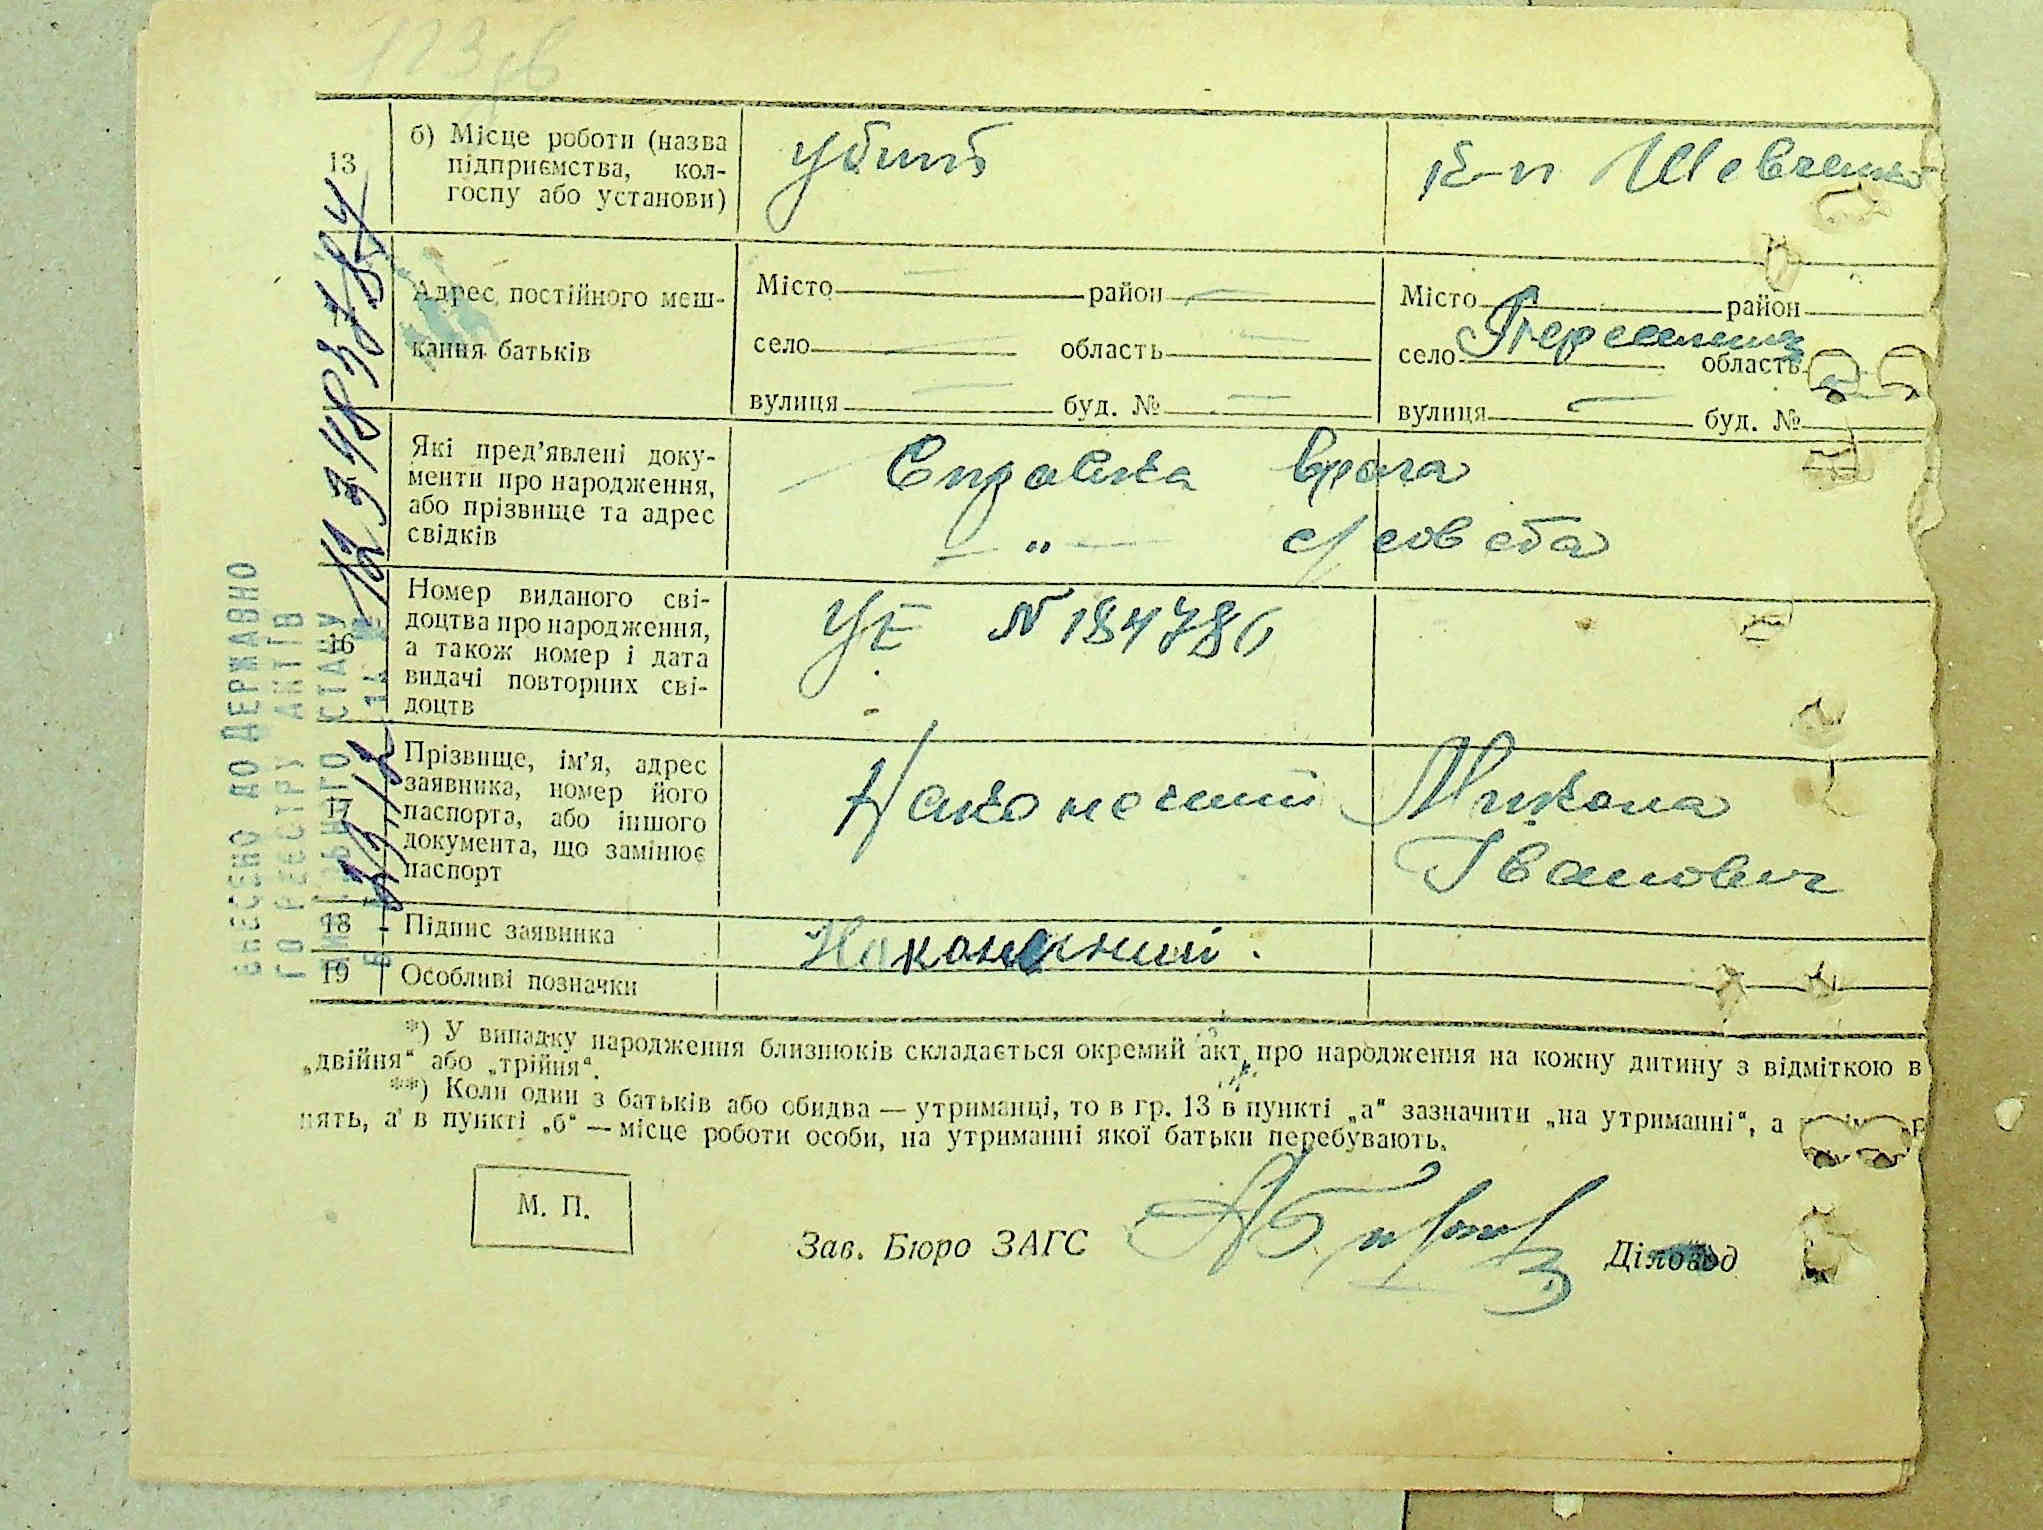 13
б) Місце роботи (назва
підприємства, кол-
госпу або установи)
убит
к-п Шевченко
Адрес постійного меш-
кання батьків
Місто район
село область
вулиця буд. №
Місто район
село область
вулиця буд. №
Які пред’явлені доку-
менти про народження,
або прізвище та адрес
свідків
Справка врача
— „ — с/совета
16
Номер виданого сві-
доцтва про народження,
а також номер і дата
видачі повторних сві-
доцтв
УЕ № 184786
17
Прізвище, ім’я, адрес
заявника, номер його
паспорта, або іншого
документа, що замінює
паспорт
Наконечний Микола
Іванович
18
Підпис заявника
Наконечний.
19
Особливі позначки
*) У випадку народження близнюків складається окремий акт про народження на кожну дитину з відміткою в
„двійня“ або „трійня“.
**) Коли один з батьків або обидва — утриманці, то в гр. 13 в пункті „а“ зазначити „на утриманні“, а
нять, а в пункті „б“ — місце роботи особи, на утриманні якої батьки перебувають.
М. П.
Зав. Бюро ЗАГС
Діловод
ВНЕСЕНО ДО ДЕРЖАВНО
ГО РЕЄСТРУ АКТІВ
СТАНУ